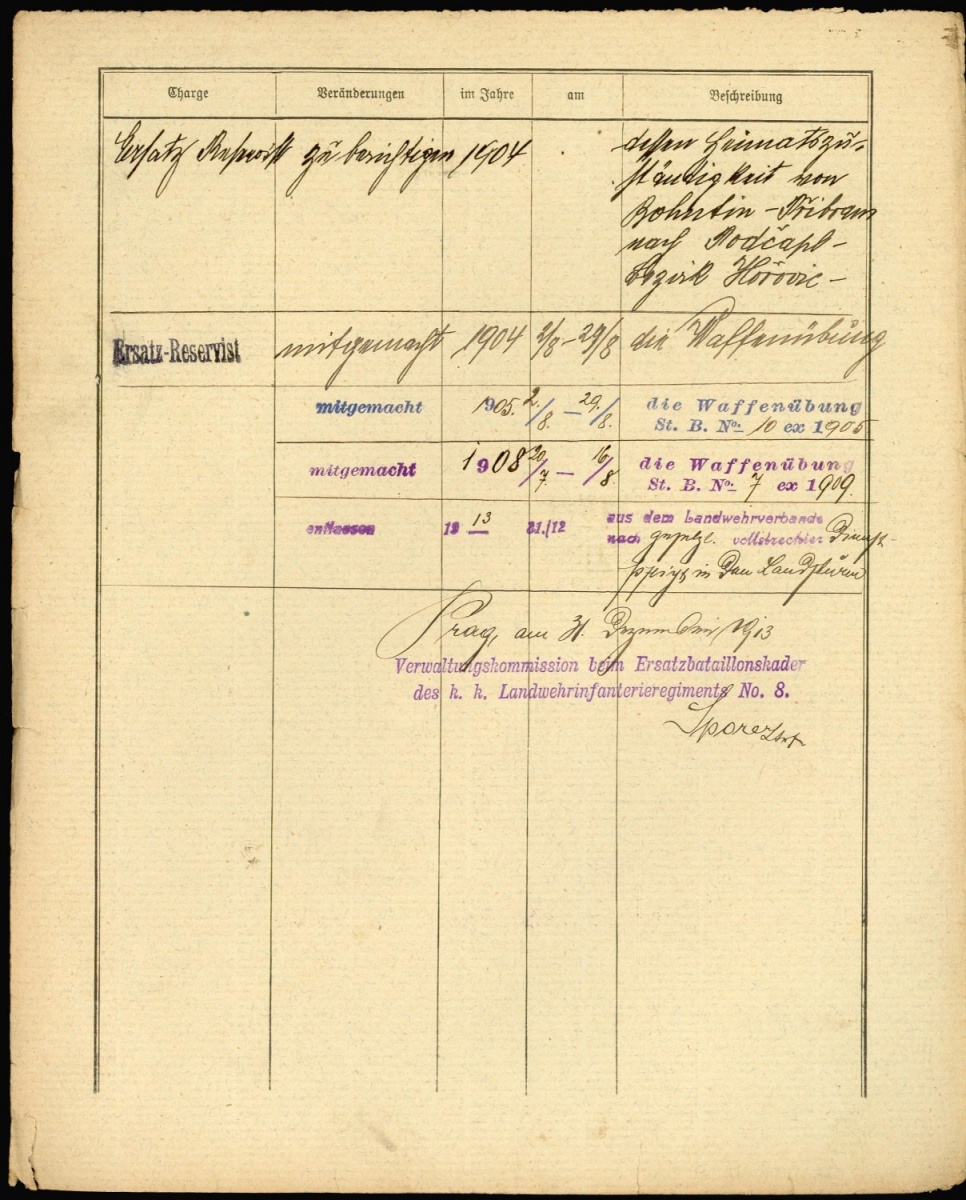 Charge Veränderungen im Jahre am Beschreibung
Ersatz Reservist zu berichtigen 1904 dessen Heimatszu-
ständigkeit von
Bohutin - Přibram
nach Podčapl-
bezirk Hořovic -
Ersatz-Reservist mitgemacht 1904 2/8 - 29/8 die Waffenübung
mitgemacht 1905. 2./8. - 29./8. die Waffenübung
St. B. No. 10 ex 1905
mitgemacht 1908 20/7. - 16/8. die Waffenübung
St. B. No. 7 ex 1909.
entlassen 1913 31./12 aus dem Landwehrverbande
nach gesetzl. vollstreckter Dienst-
pflicht in den Landsturm
Prag, am 31. Dezember 1913
Verwaltungskommission beim Ersatzbataillonskader
des k. k. Landwehrinfanterieregiments No. 8.